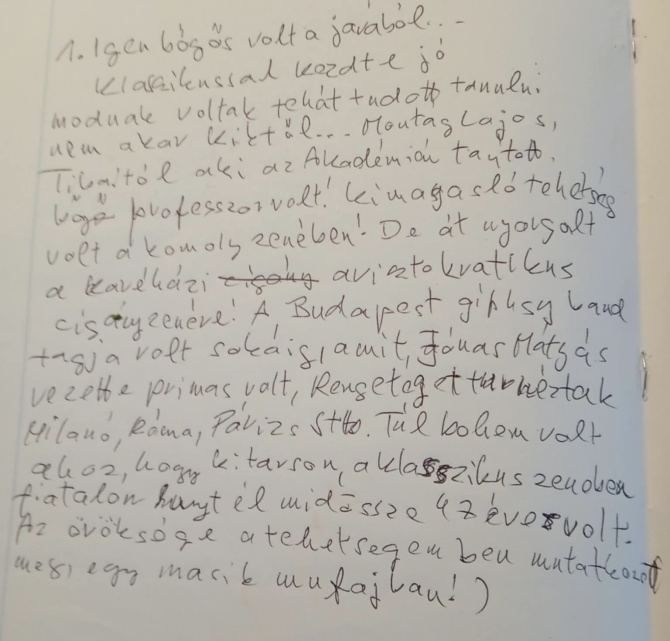 1. Igen bőgős volt a javából...-
Klaszikussal kezdte jó
moduak voltak tehát tudott tanulni
nem akar kiktől... Montag Lajos,
Tibaitól aki az Akadémián tanytott.
bőgő professzor volt! kimagasló tehetség
volt a komoly zenében! De át nyorgalt
a kavéházi arisztokratikus
cigányzenére! A Budapest giphsy band
tagja volt sokáig, amit, Jónas Mátyás
vezette primas volt, Rengeteg et turnéztak
Milanó, Róma, Párizs Stb. Túl bohem volt
ahoz, hogy kitarson, a klasszikus zenében
fiatalon hunyt él midössze 47 éves volt.
Az öröksége a tehetsegem ben mutatkozott
meg, egy masik mufajban!)